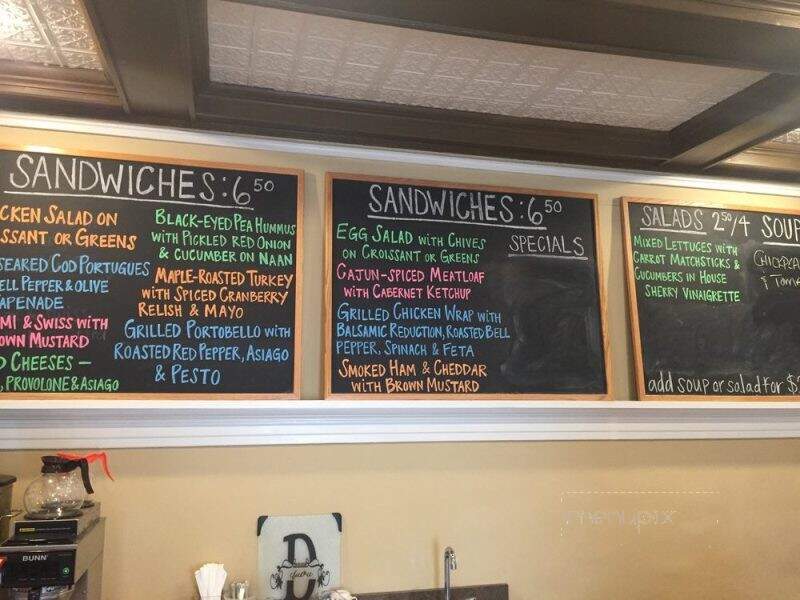 SANDWICHES: 6 50
CKEN SALAD ON
SSANT OR GREENS
SEARED COD PORTUGUES
ELL PEPPER & OLIVE
APENADE
MI & SWISS WITH
OWN MUSTARD
D CHEESES –
, PROVOLONE & ASIAGO
BLACK-EYED PEA HUMMUS
WITH PICKLED RED ONION
& CUCUMBER ON NAAN
MAPLE-ROASTED TURKEY
WITH SPICED CRANBERRY
RELISH & MAYO
GRILLED PORTOBELLO WITH
ROASTED RED PEPPER, ASIAGO
& PESTO
SANDWICHES: 6 50
EGG SALAD WITH CHIVES
ON CROISSANT OR GREENS
CAJUN-SPICED MEATLOAF
WITH CABERNET KETCHUP
GRILLED CHICKEN WRAP WITH
BALSAMIC REDUCTION, ROASTED BELL
PEPPER, SPINACH & FETA
SMOKED HAM & CHEDDAR
WITH BROWN MUSTARD
SPECIALS
SALADS 2 50/4
MIXED LETTUCES WITH
CARROT MATCHSTICKS &
CUCUMBERS IN HOUSE
SHERRY VINAIGRETTE
SOUP
& Toma
add soup or salad for $2
BUNN
D
menupix